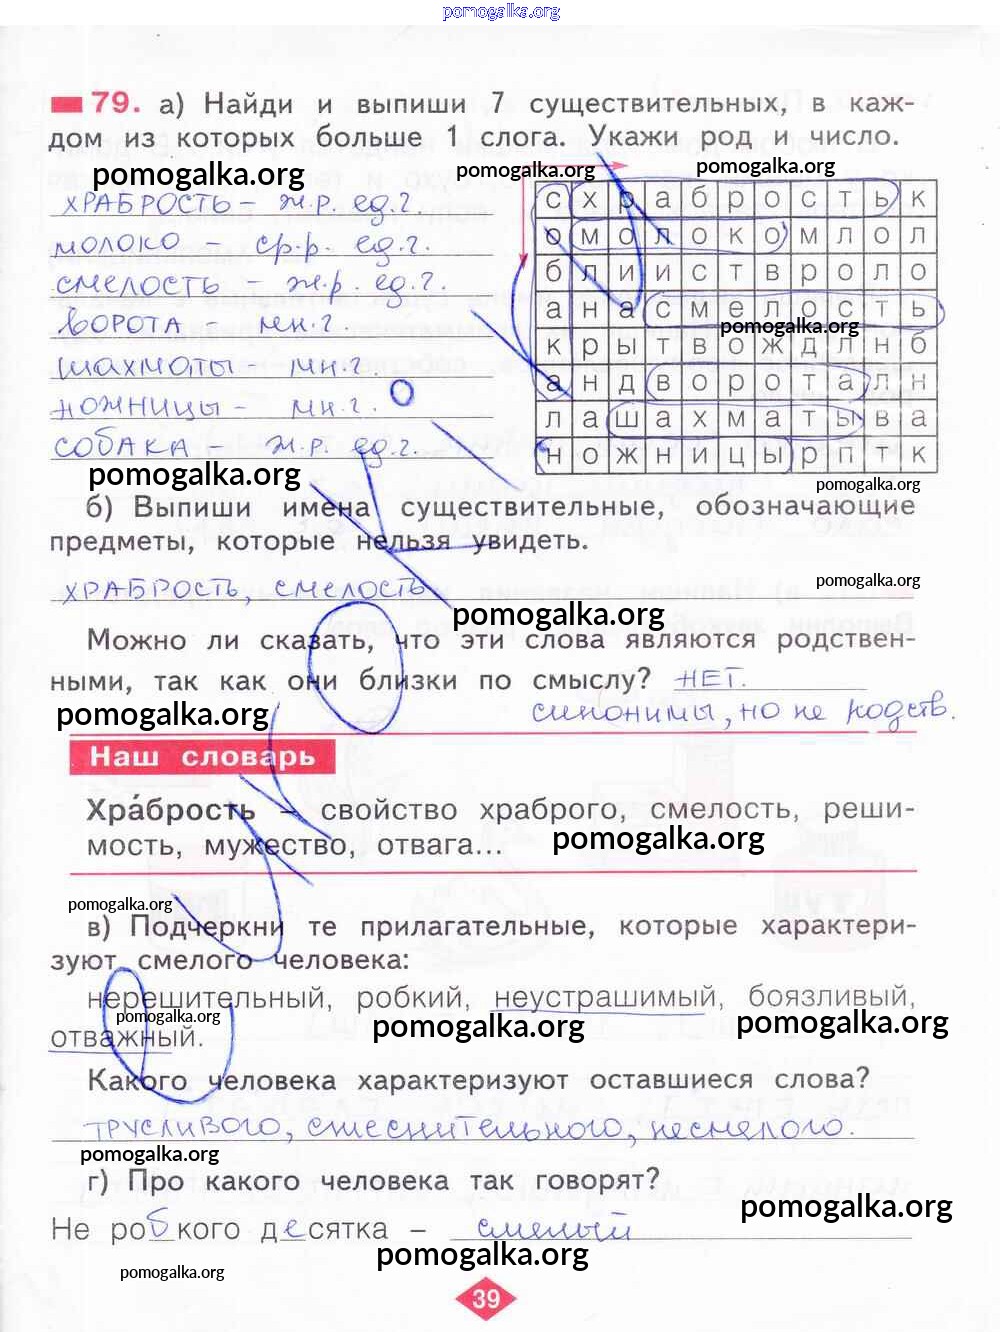 pomogalka.org
79. а) Найди и выпиши 7 существительных, в каж-
дом из которых больше 1 слога. Укажи род и число.
pomogalka.org pomogalka.org pomogalka.org
ХРАБРОСТЬ – ж.р. ед.ч.
МОЛОКО – ср.р. ед.ч.
СМЕЛОСТЬ – ж.р. ед.ч.
ВОРОТА мн.ч.
ШАХМОТЫ – мн.ч.
НОЖНИЦЫ – мн.ч.
СОБАКА – ж.р. ед.ч.
с х р а б р о с т ь к
о м о л о к о м л о л
б л и и с т в р о л о
а н а с м е л о с т ь
pomogalka.org
к р ы т в о ж д л н б
а н д в о р о т а л н
л а ш а х м а т ы в а
н о ж н и ц ы р п т к
pomogalka.org pomogalka.org
б) Выпиши имена существительные, обозначающие
предметы, которые нельзя увидеть.
ХРАБРОСТЬ, СМЕЛОСТЬ
pomogalka.org
pomogalka.org
Можно ли сказать, что эти слова являются родствен-
ными, так как они близки по смыслу? НЕТ.
pomogalka.org синонимы, но не родств.
Наш словарь
Хра́брость – свойство храброго, смелость, реши-
мость, мужество, отвага...
pomogalka.org
pomogalka.org
в) Подчеркни те прилагательные, которые характери-
зуют смелого человека:
нерешительный, робкий, неустрашимый, боязливый,
отважный.
pomogalka.org pomogalka.org pomogalka.org
Какого человека характеризуют оставшиеся слова?
трусливого, стеснительного, несмелого.
pomogalka.org
г) Про какого человека так говорят?
pomogalka.org
Не робкого десятка – смелый
pomogalka.org
pomogalka.org
39